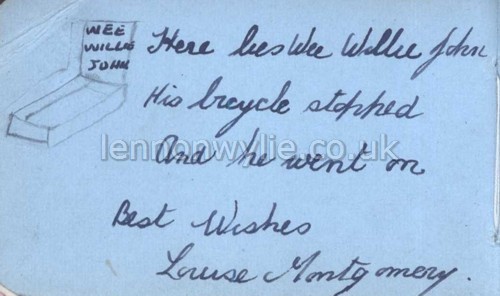 WEE
WILLIE
JOHN
Here lies Wee Willie John
His bicycle stopped
And he went on
lennonwylie.co.uk
Best Wishes
Louise Montgomery.